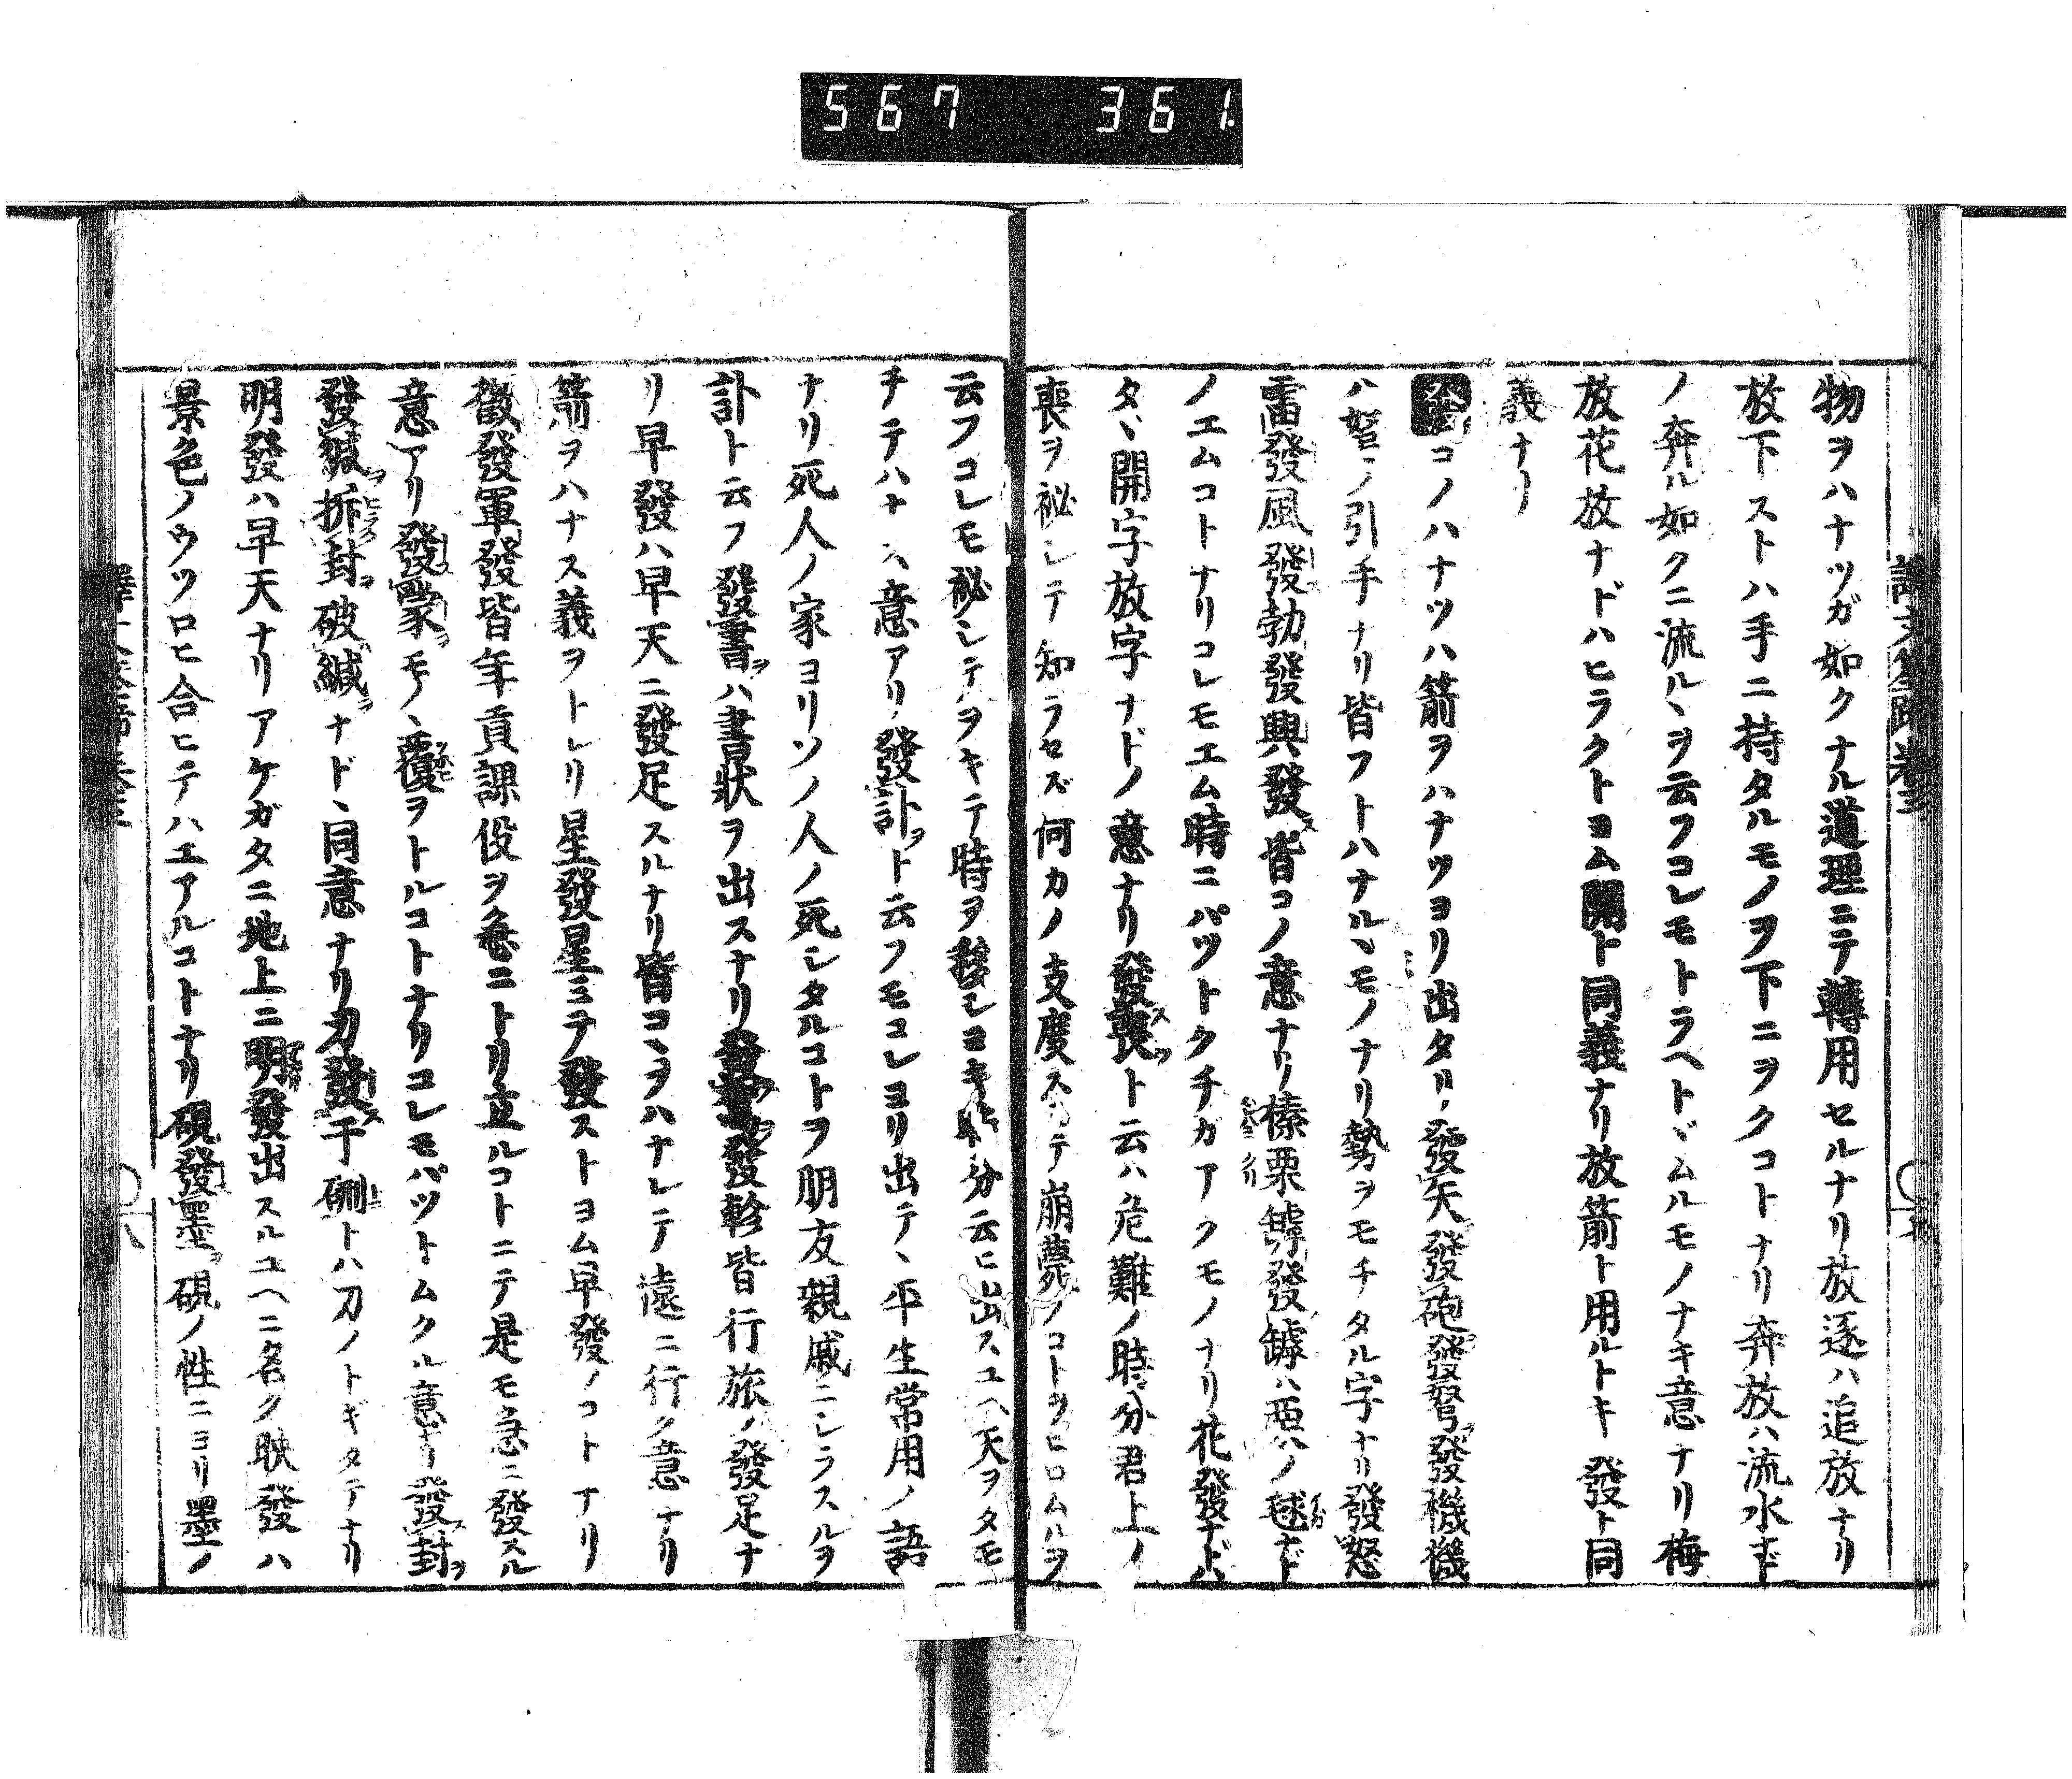 567 361
物ヲハナツガ如クナル道理ニテ轉用セルナリ放逐ハ追放ナリ
放下ストハ手ニ持タルモノヲ下ニヲクコトナリ奔放ハ流水ナド
ノ奔ル如クニ流ルヽヲ云フコレモトラヘトヾムルモノナキ意ナリ梅
放花放ナドハヒラクトヨム開ト同義ナリ放箭ト用ルトキ發ト同
義ナリ
發コノハナツハ箭ヲハナツヨリ出タリ發矢發砲發弩發機機
ハ弩ノ引手ナリ皆フトハナルヽモノナリ勢ヲモチタル字ナリ發怒
雷發風發勃發興發皆コノ意ナリ榛栗罅發罅ハ西ハノ毬ナド
ノエムコトナリコレモエム時ニパツトクチガアクモノナリ花發ナドハ
タヾ開字放字ナドノ意ナリ發喪ト云ハ危難ノ時分君上ノ
喪ヲ祕シテ知ラセズ何カノ支度スンテ崩薨ノコトヲヒロムルヲ
云フコレモ祕シテヲキテ時ヲ移シヨキ時分云ヒ出スユヘ天ヲタモ
チテハナス意アリ發訃ト云フモコレヨリ出テヽ平生常用ノ語
ナリ死人ノ家ヨリソノ人ノ死シタルコトヲ朋友親戚ニシラスルヲ
訃ト云フ發書ハ書狀ヲ出スナリ發發軫皆行旅ノ發足ナ
リ早發ハ早天ニ發足スルナリ皆コヽヲハナレテ遠ニ行ク意ナリ
箭ヲハナス義ヲトレリ星發星ミテ發ストヨム早發ノコトアリ
徵發軍發皆年貢課役ヲ急ニトリ立ルコトニテ是モ急ニ發スル
意アリ發蒙モノヽ覆ヲトルコトナリコレモパツトムクル意ナリ發封
發緘拆封破緘ナドヽ同意ナリ刀發于硎トハ刀ノトギタテナリ
明發ハ早天ナリアケガタニ地上ニ明發出スルユヘニ名ク映發ハ
景色ノウツロヒ合ヒテハエアルコトナリ硯發墨硯ノ性ニヨリ墨ノ